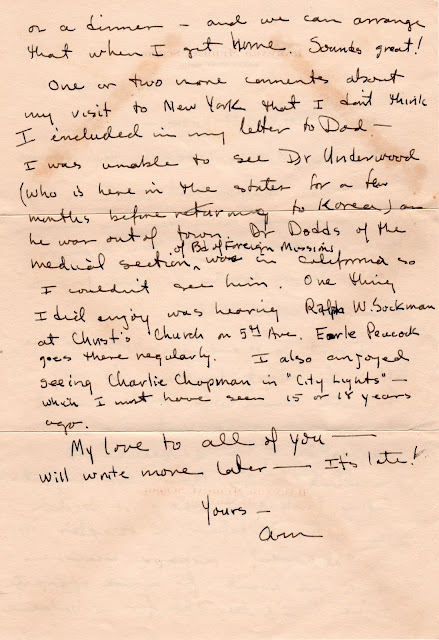 or a dinner — and we can arrange
that when I get home. Sounds great!
One or two more comments about
my visit to New York that I don't think
I included in my letter to Dad —
I was unable to see Dr Underwood
(who is here in the states for a few
months before returning to Korea) as
he was out of town. Dr Dodds of the
of Bd of Foreign Missions
medical section, was in California so
I couldn't see him. One thing
I did enjoy was hearing Ralph W. Sockman
at Christ's Church on 5th Ave. Earle Peacock
goes there regularly. I also enjoyed
seeing Charlie Chapman in "City Lights" —
which I must have seen 15 or 18 years
ago.
My love to all of you —
will write more later — It's late!
Yours —